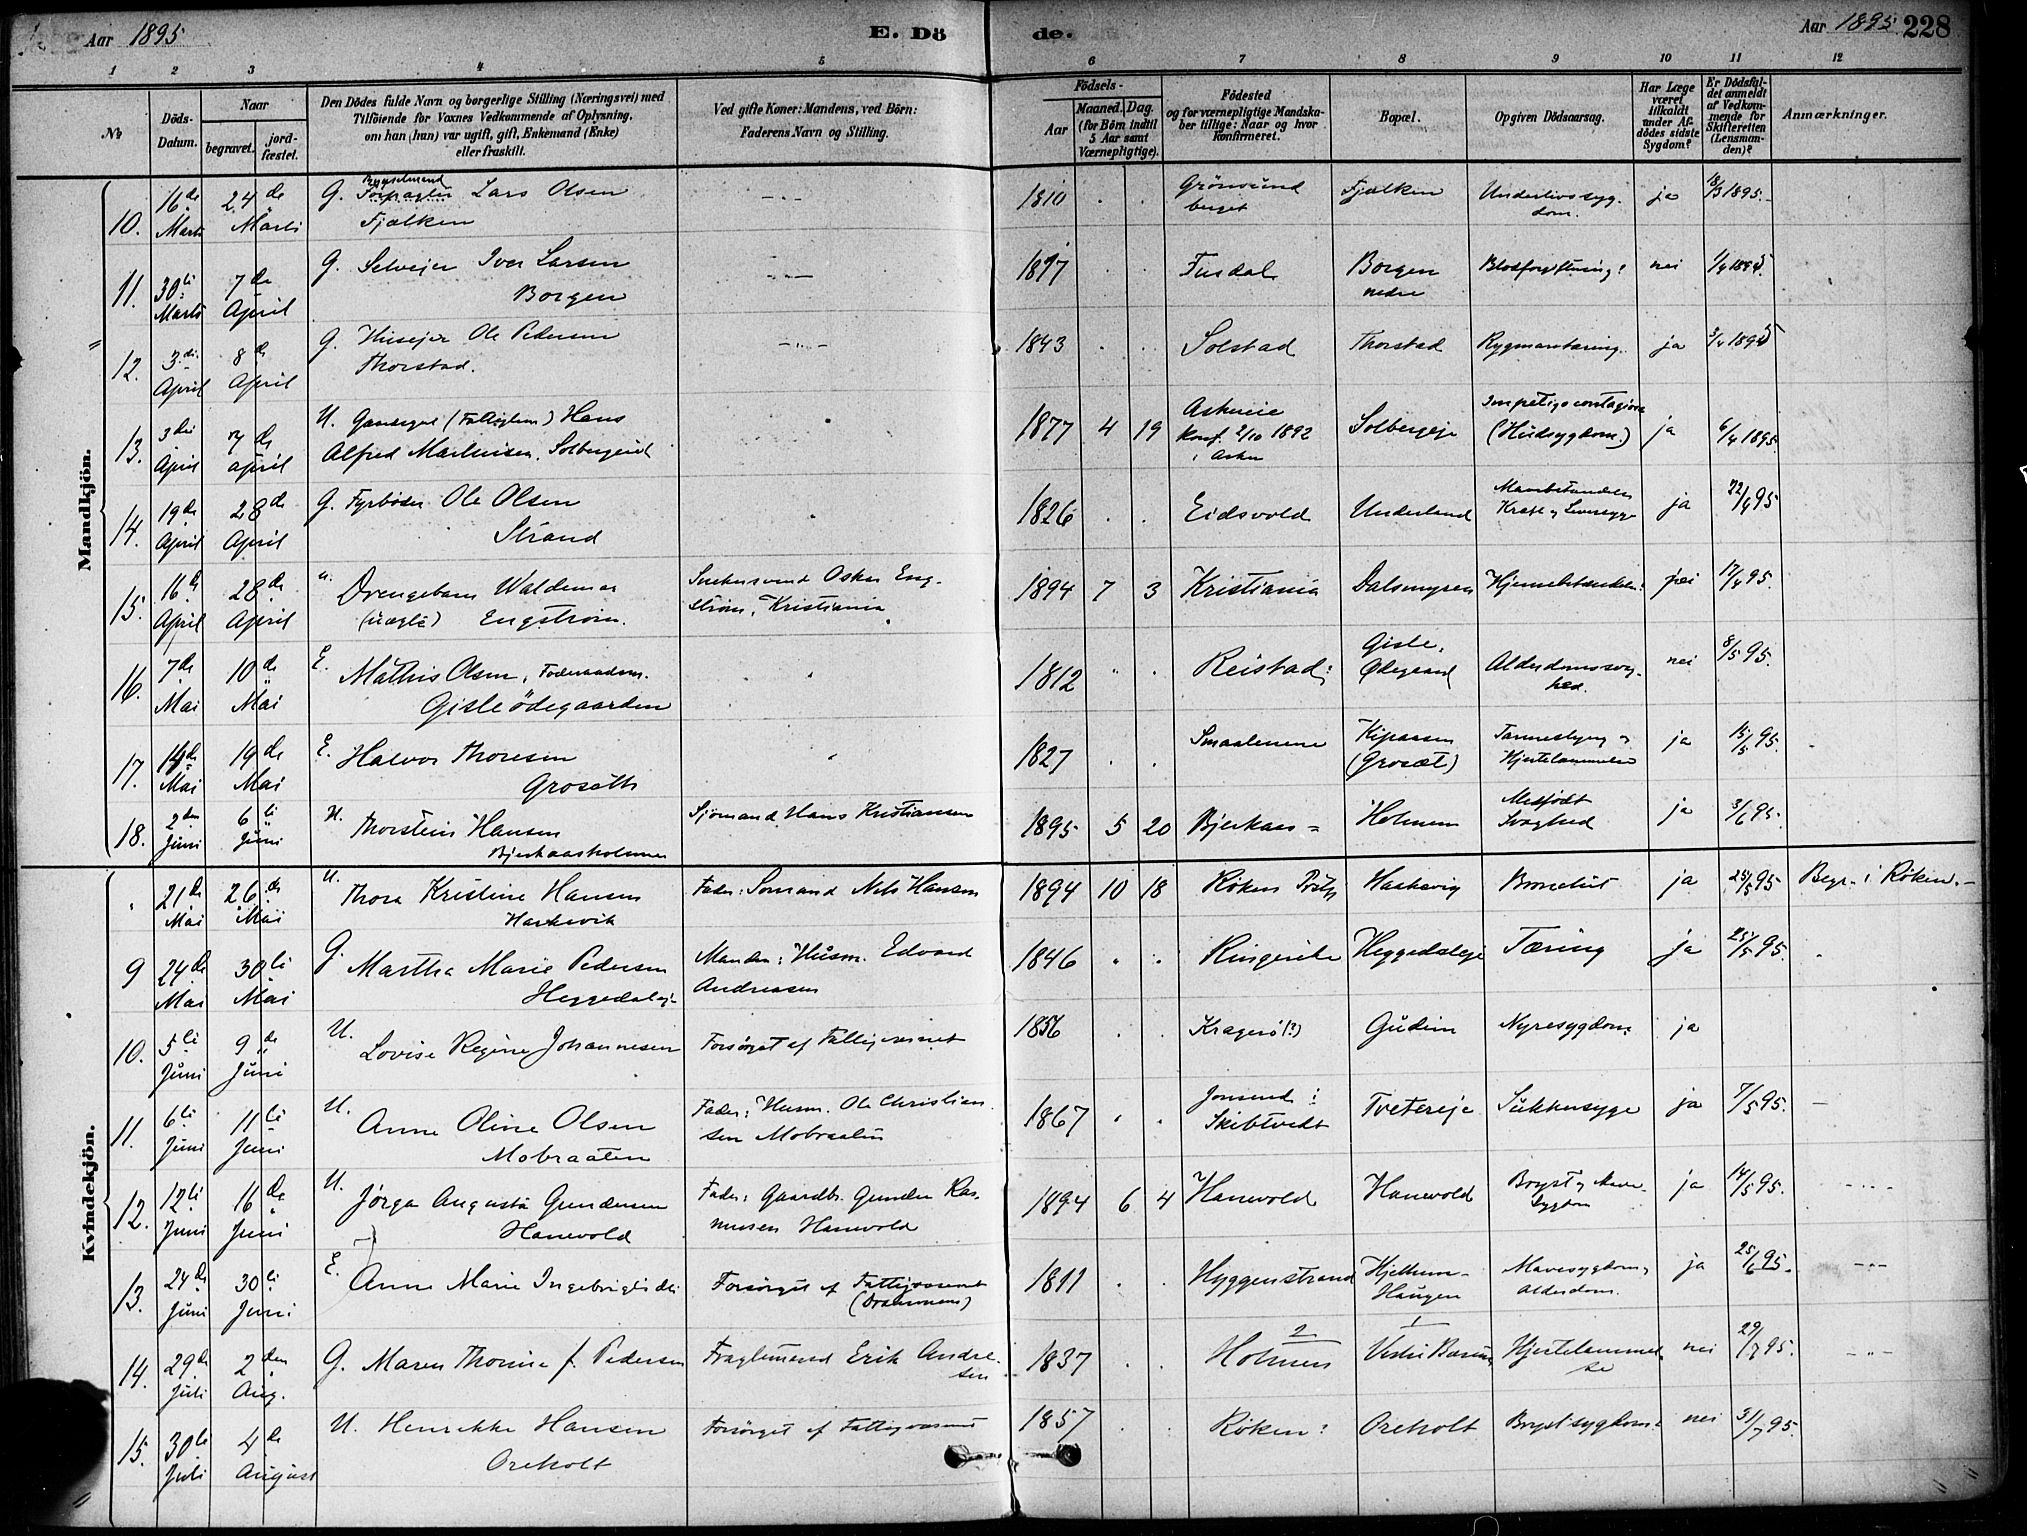 Aar 1895
E. Dö
de.
Aar 1895.
228
1 2 3 4 5 6 7 8 9 10 11 12
No
Döds-Datum.
Naar
begravet. jordfæstet.
Den Dödes fulde Navn og borgerlige Stilling (Næringsvei) med
Tilföiende for Voxnes Vedkommende af Oplysning,
om han (hun) var ugift, gift, Enkemand (Enke)
eller fraskilt.
Ved gifte Koner: Mandens, ved Börn:
Faderens Navn og Stilling.
Födsels-
Aar
Maaned. Dag.
(for Börn indtil
5 Aar samt
Værnepligtige).
Födested
og for værnepligtige Mandskaber tillige: Naar og hvor
Konfirmeret.
Bopæl.
Opgiven Dödsaarsag.
Har Læge
været
tilkaldt
under Afdödes sidste
Sygdom?
Er Dödsfaldet anmeldt
af Vedkommende for
Skifteretten
(Lensmanden)?
Anmærkninger.
Mandkjön.
10. 16de Marts 24de Marts G. Lars Olsen Fjælken 1810 . . Fjælken Underlivssygdom. ja 18/3 1895.
11. 30te Marts 7de April G. Selveier Iver Larsen Borgen Fusdal Borgen nedre Blodforgiftning nei
12. 3die April 8de April G. Huseier Ole Pedersen Thorstad. 1843 . . Solstad Thorstad Rygmarvtæring. ja
13. 3die April 7de April U. Hans Alfred Martinsen, Solbergeid 1877 4 19 Konf. 2/10 1892 i Asker Solbergeje Impetigo contagiosa (Hudsygdom.) ja 6/4 1895.
14. 19de April 28de April G. Fyrbøder Ole Olsen Strand 1826 . . Eidsvold Underland ja 22/4 95
15. 16de April 28de April Drengebarn Waldemar (uægte) Engstrøm. Oskar Engstrøm, Kristiania 1894 7 3 Kristiania Dalsmyren
16. 7de Mai 10de Mai E. Mathis Olsen, Gisleødegaarden 1812 " . Reistad Gisle, Ødegaard Alderdomssvaghed. nei 8/5 95.
17. 14de Mai 19de Mai E. Halvor Thoresen Groseth 1827 . . Smaalenene (Grosæt) ja 15/5 95.
18. 2den Juni 6te Juni U. Thorstein Hansen Bjerkaasholmen Sjømand Hans Kristiansen 1895 5 20 Bjerkaas = Holmen Medfødt Svaghed ja 3/6 95.
Kvindekjön.
21de Mai 26de Mai U. Thora Kristine Hansen Fader: Sømand Nils Hansen 1894 10 18 Røken ja 25/5 95 Begr. i Røken.
9 24de Mai 30te Mai G. Martha Marie Pedersen Heggedalej. Manden: Husm. Edvard Andreasen 1846 . . Ringerike Heggedaleje Tæring ja 25/5 95.
10. 5te Juni 9de Juni U. Lovise Regine Johannesen Forsørget af Fattigvæsenet 1856 . . Kragerø (?) Gudim Nyresygdom ja
11. 6te Juni 11te Juni U. Anne Oline Olsen Mobraaten Fader: Husm. Ole Christiansen Mobraaten 1867 . . Skibtvedt Tvetereje Sukkersyge ja 7/5 95.
12. 12te Juni 16de Juni U. Jørga Augusta Gundersen Hanevold Fader: Gaardbr. Gunder Rasmussen Hanevold 1894 6 4 Hanevold Hanevold ja 14/5 95.
13. 24de Juni 30te Juni E. Anne Marie Ingebrigtsdtr. Forsørget af Fattigvæsenet (Drammens) 1811 . . Hyggenstrand Mavesygdom, Alderdom. ja 25/6 95.
14. 29de Juli 2den Aug. G. Maren Thorine f. Pedersen Erik Andresen 1837 . . Holmen Hjertelammelse nei 29/7 95.
15. 30te Juli 4de August U. Henrikke Hansen Oreholt Forsørget af Fattigvæsenet 1857 . . Røken Oreholt Brystsygdom nei 31/7 95.